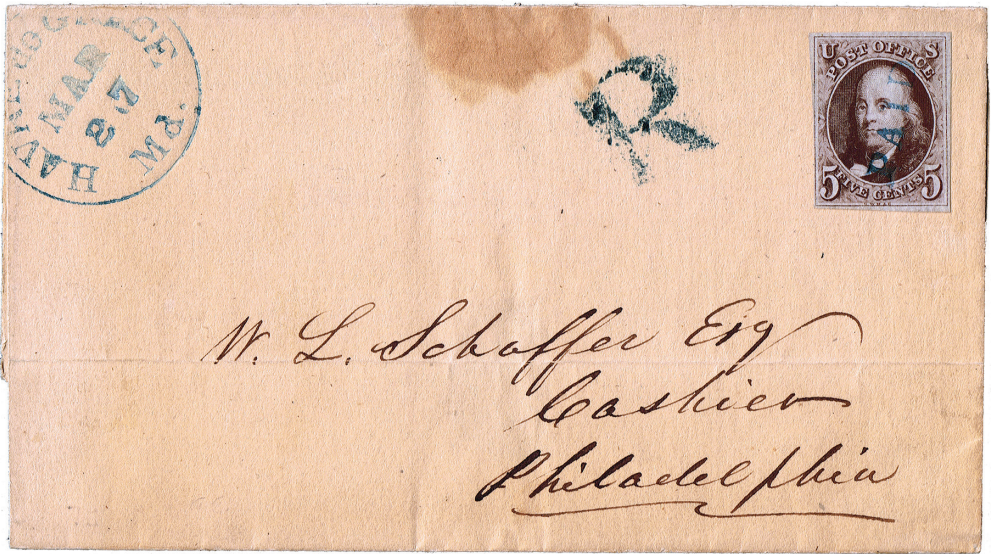 HAVRE DeGRACE Md.
MAR
27
R
U S
POST OFFICE
PAID
5 FIVE CENTS 5
W. L. Schaffer Esq
Cashier
Philadelphia